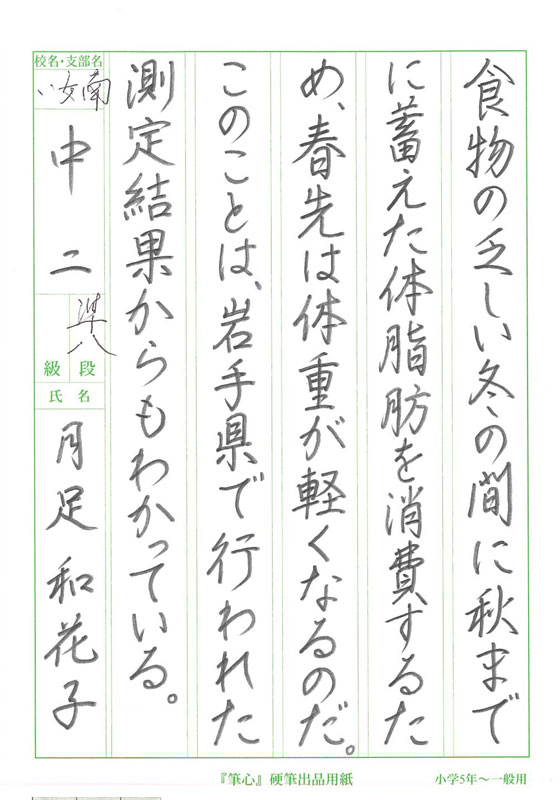 食物の乏しい冬の間に秋まで
に蓄えた体脂肪を消費するた
め、春先は体重が軽くなるのだ。
このことは、岩手県で行われた
測定結果からもわかっている。
校名・支部名
中二
準八
段
級
氏名
月足和花子
『筆心』硬筆出品用紙
小学5年〜一般用